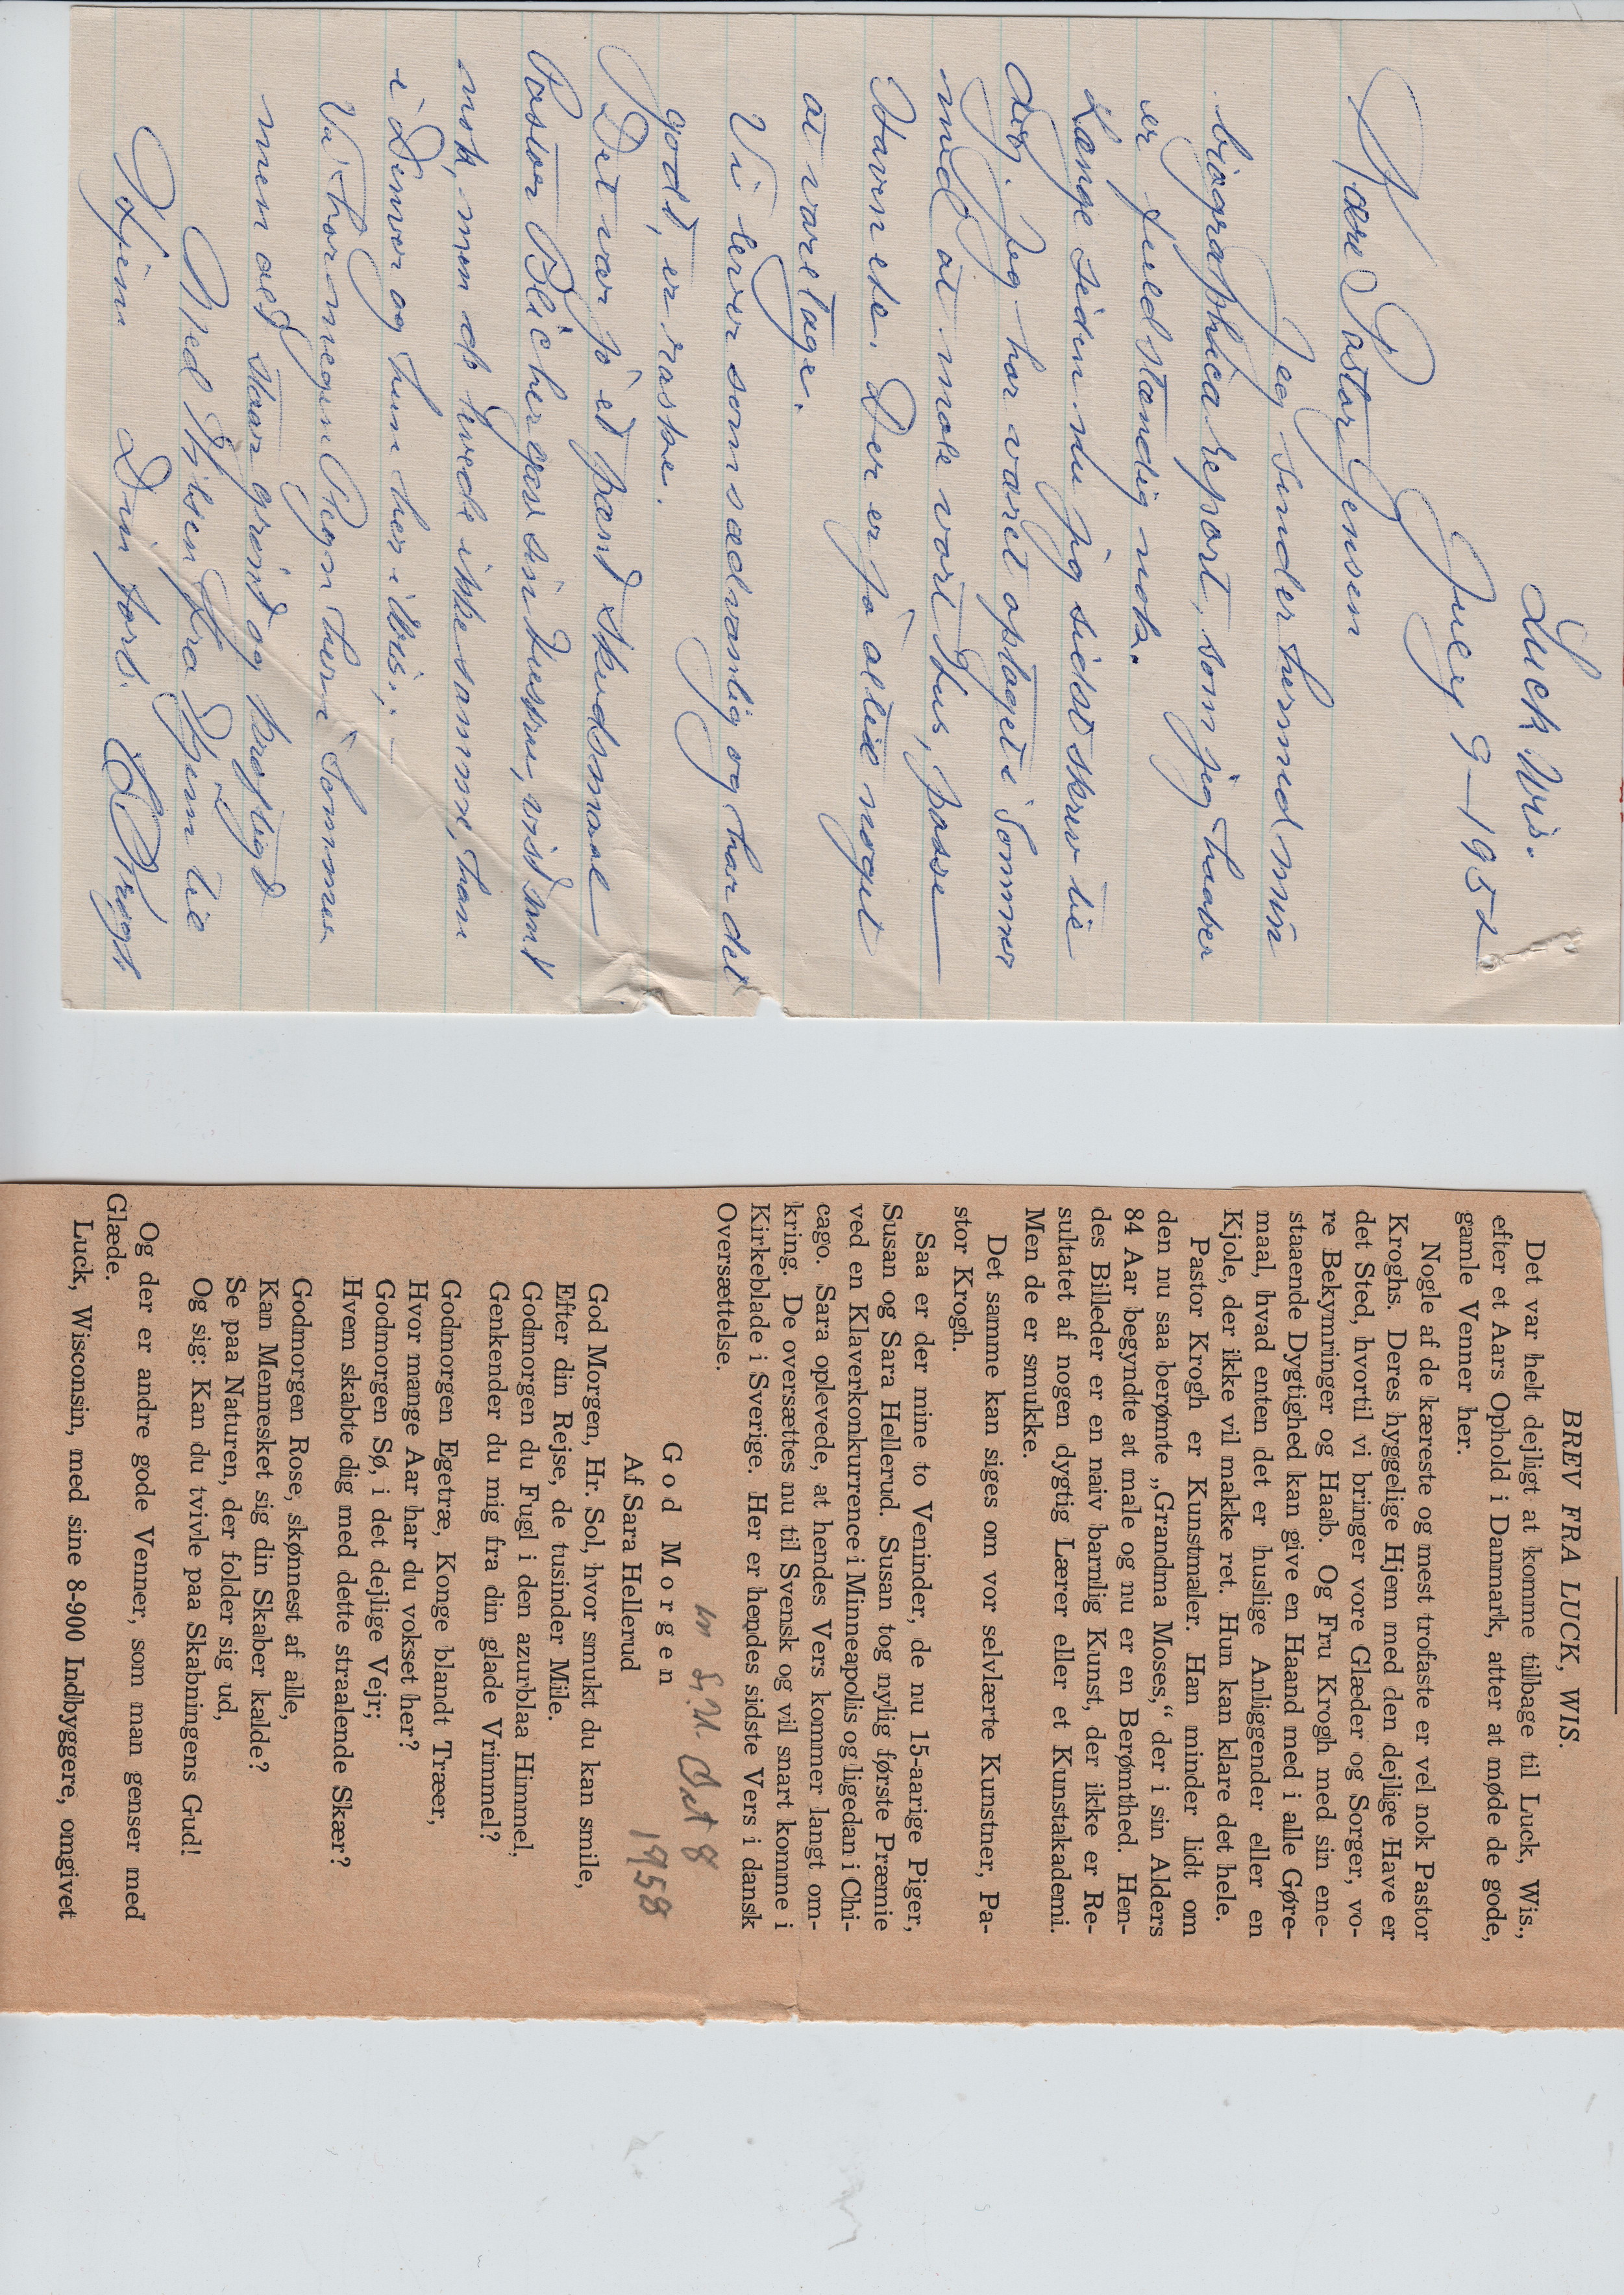 Luck Wis.
July 9-1952
Kære Pastor Jensen
Jeg sender hermed min
biographica report, som jeg haaber
er fuldstændig nok.
Længe siden nu jeg sidst skrev til
dig. Jeg har været optaget i Sommer
med at male vort Hus, passe
Haven etc. Der er jo altid noget
at varetage.
Vi lever som sædvanlig og har det
godt, er raske.
Det var jo et pænt Skudsmaal
Pastor Blicher gav sin Hustru, vist sandt
nok, men de levede ikke samme, han
i Denver og hun her i Wis; -
Vi har megen Regn her i Sommer
men alt staar grønt og kraftigt
Med Hilsen fra Hjem til
Hjem Din forb. L. Krogh
BREV FRA LUCK, WIS.
Det var helt dejligt at komme tilbage til Luck, Wis.,
efter et Aars Ophold i Danmark, atter at møde de gode,
gamle Venner her.
Nogle af de kæreste og mest trofaste er vel nok Pastor
Kroghs. Deres hyggelige Hjem med den dejlige Have er
det Sted, hvortil vi bringer vore Glæder og Sorger, vo-
re Bekymringer og Haab. Og Fru Krogh med sin ene-
staaende Dygtighed kan give en Haand med i alle Gøre-
maal, hvad enten det er huslige Anliggender eller en
Kjole, der ikke vil makke ret. Hun kan klare det hele.
Pastor Krogh er Kunstmaler. Han minder lidt om
den nu saa berømte „Grandma Moses,“ der i sin Alders
84 Aar begyndte at male og nu er en Berømthed. Hen-
des Billeder er en naiv barnlig Kunst, der ikke er Re-
sultatet af nogen dygtig Lærer eller et Kunstakademi.
Men de er smukke.
Det samme kan siges om vor selvlærte Kunstner, Pa-
stor Krogh.
Saa er der mine to Veninder, de nu 15-aarige Piger,
Susan og Sara Hellerud. Susan tog nylig første Præmie
ved en Klaverkonkurrence i Minneapolis og ligedan i Chi-
cago. Sara oplevede, at hendes Vers kommer langt om-
kring. De oversættes nu til Svensk og vil snart komme i
Kirkeblade i Sverige. Her er hendes sidste Vers i dansk
Oversættelse.
Oct 8
1958
God Morgen
Af Sara Hellerud
God Morgen, Hr. Sol, hvor smukt du kan smile,
Efter din Rejse, de tusinder Mile.
Godmorgen du Fugl i den azurblaa Himmel,
Genkender du mig fra din glade Vrimmel?
Godmorgen Egetræ, Konge blandt Træer,
Hvor mange Aar har du vokset her?
Godmorgen Sø, i det dejlige Vejr;
Hvem skabte dig med dette straalende Skær?
Godmorgen Rose, skønnest af alle,
Kan Mennesket sig din Skaber kalde?
Se paa Naturen, der folder sig ud,
Og sig: Kan du tvivle paa Skabningens Gud!
Og der er andre gode Venner, som man genser med
Glæde.
Luck, Wisconsin, med sine 8-900 Indbyggere, omgivet